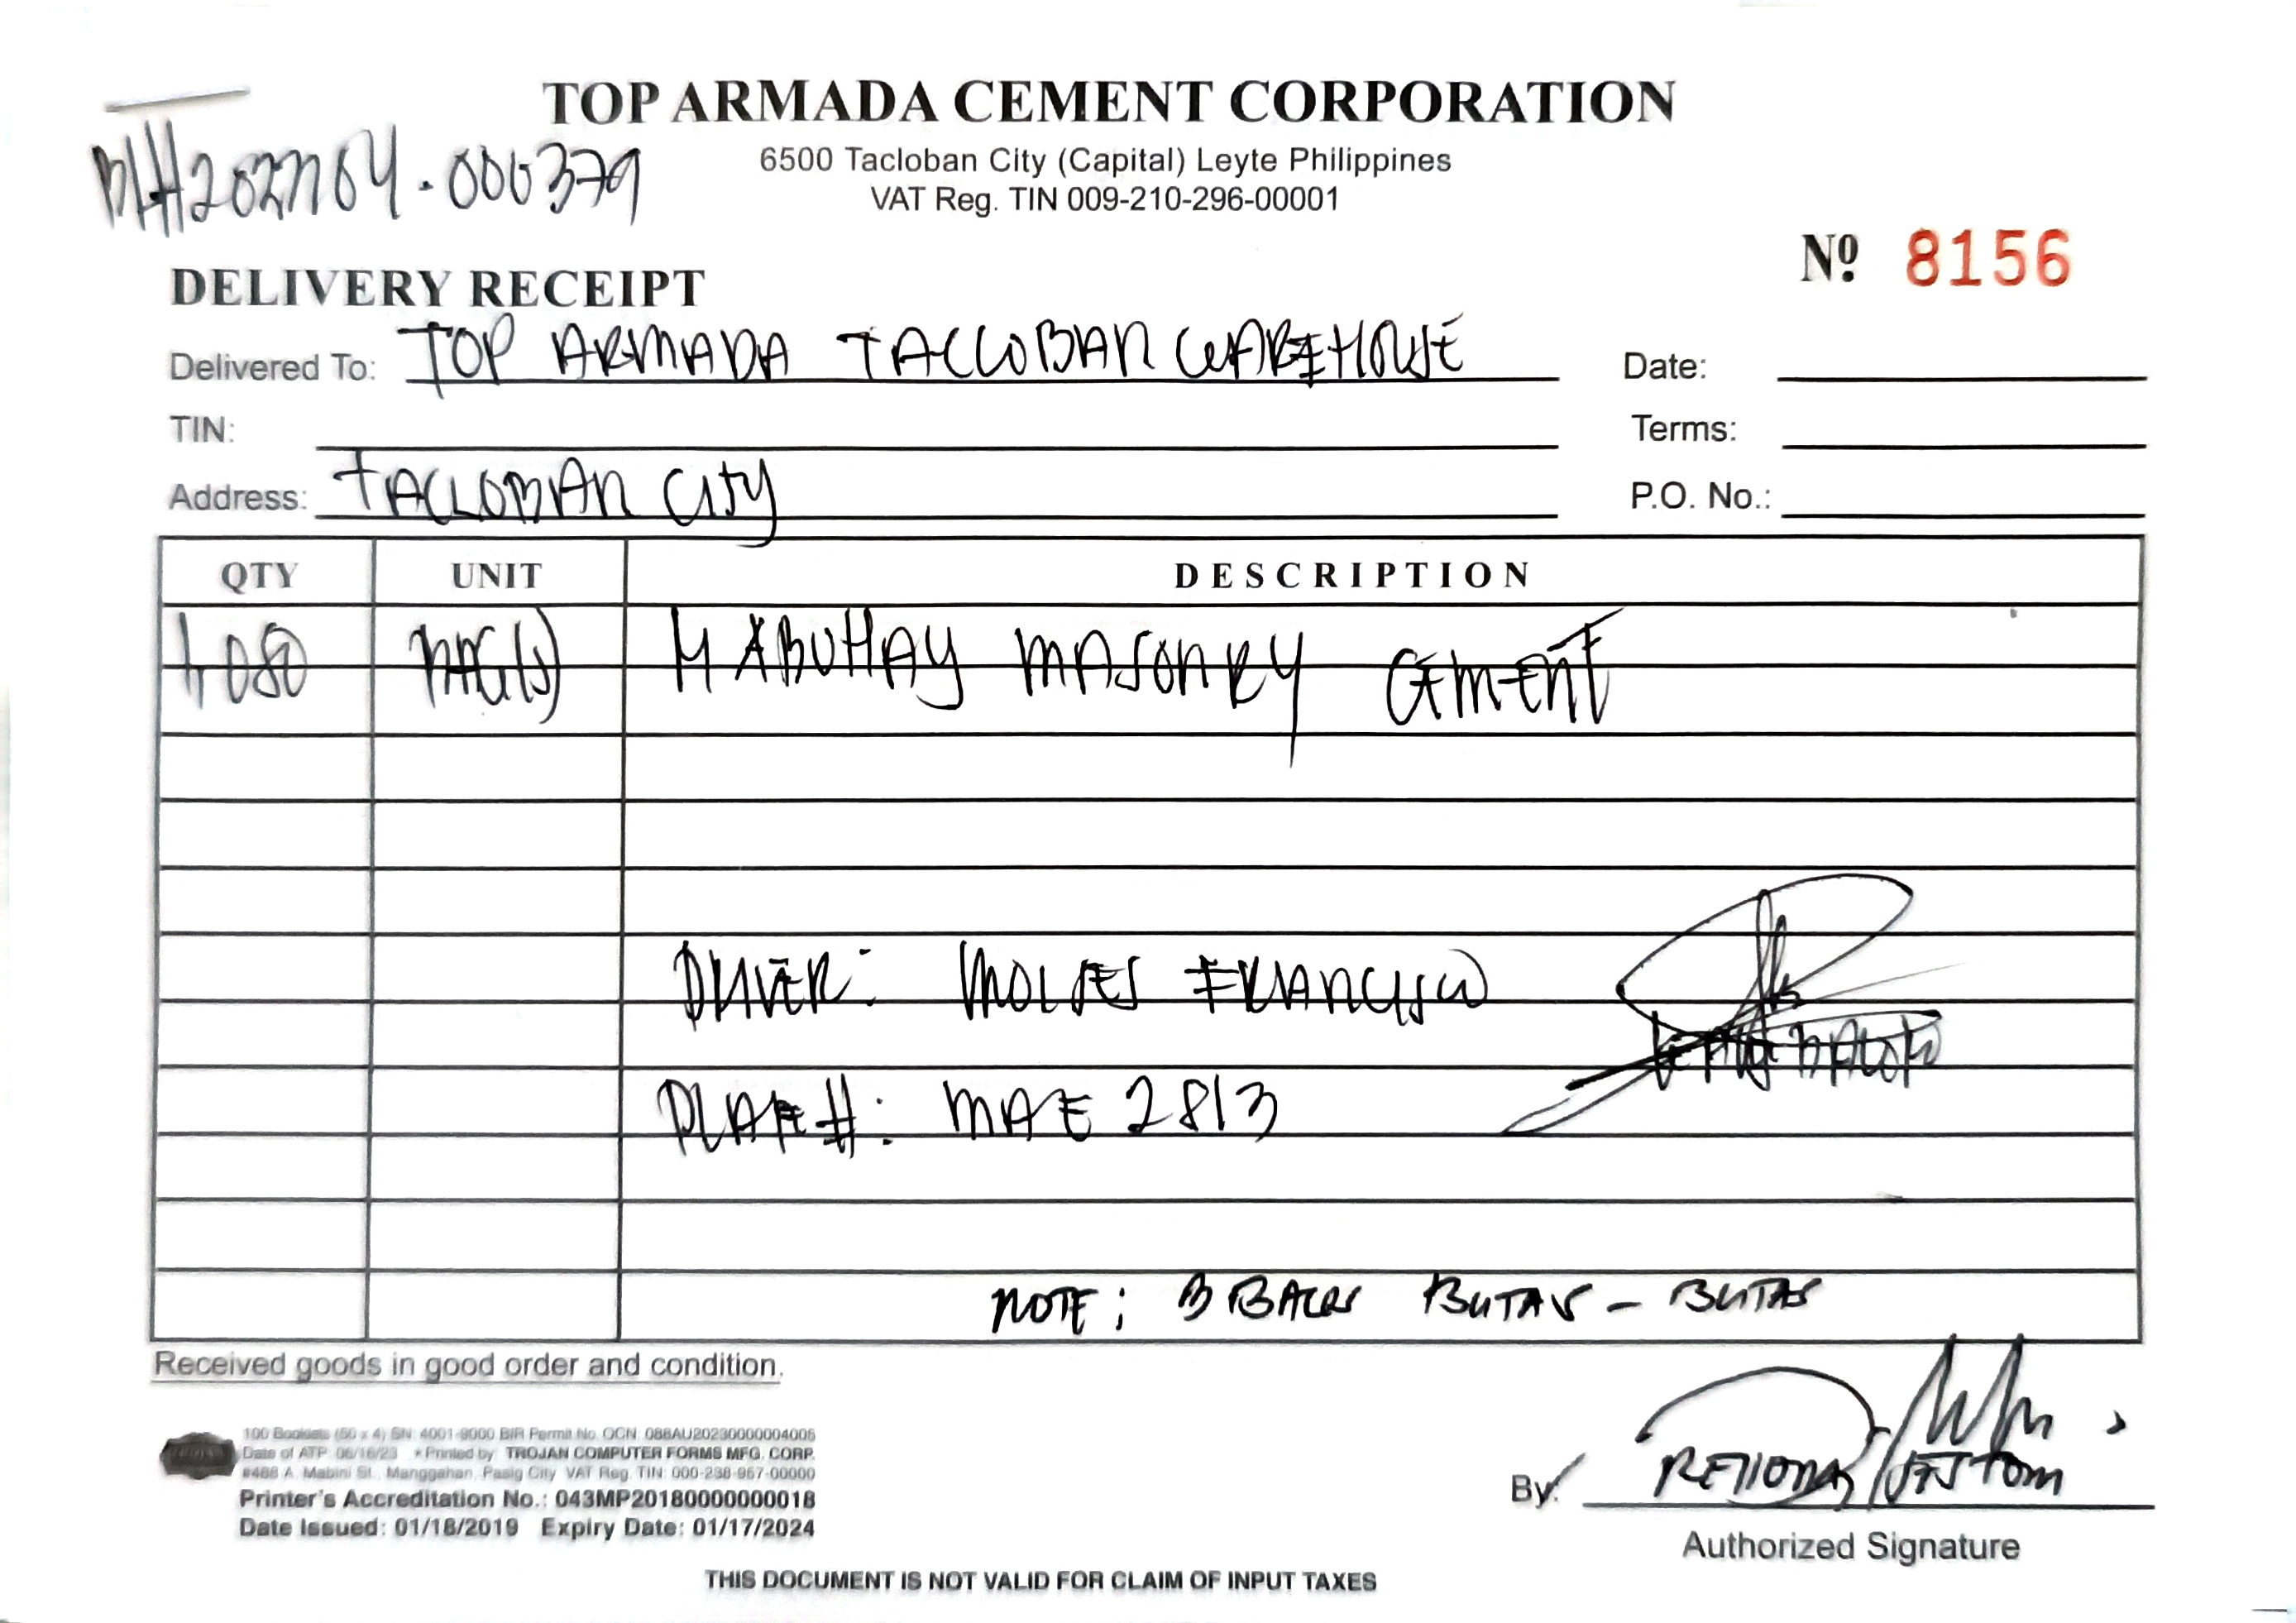 TOP ARMADA CEMENT CORPORATION
6500 Tacloban City (Capital) Leyte Philippines
VAT Reg. TIN 009-210-296-00001
Nº 8156
DELIVERY RECEIPT
Delivered To: TOP ARMADA TACLOBAN WAREHOUSE
Date:
TIN:
Terms:
Address: TACLOBAN City
P.O. No.:
QTY UNIT DESCRIPTION
1080 BAG(S) MABUHAY MASONRY CEMENT
DRIVER: FRANCISCO
PLATE #: MAE 2813
NOTE: 3 BAGS BUTAS - BUTAS
Received goods in good order and condition.
100 Booklets (50 x 4) SN: 4001-9000 BIR Permit No. OCN: 088AU20230000004006
Date of ATP: 06/16/23 * Printed by: TROJAN COMPUTER FORMS MFG. CORP.
#488 A. Mabini St., Manggahan, Pasig City VAT Reg. TIN: 000-238-957-00000
Printer's Accreditation No.: 043MP20180000000018
Date Issued: 01/18/2019 Expiry Date: 01/17/2024
By:
Authorized Signature
THIS DOCUMENT IS NOT VALID FOR CLAIM OF INPUT TAXES